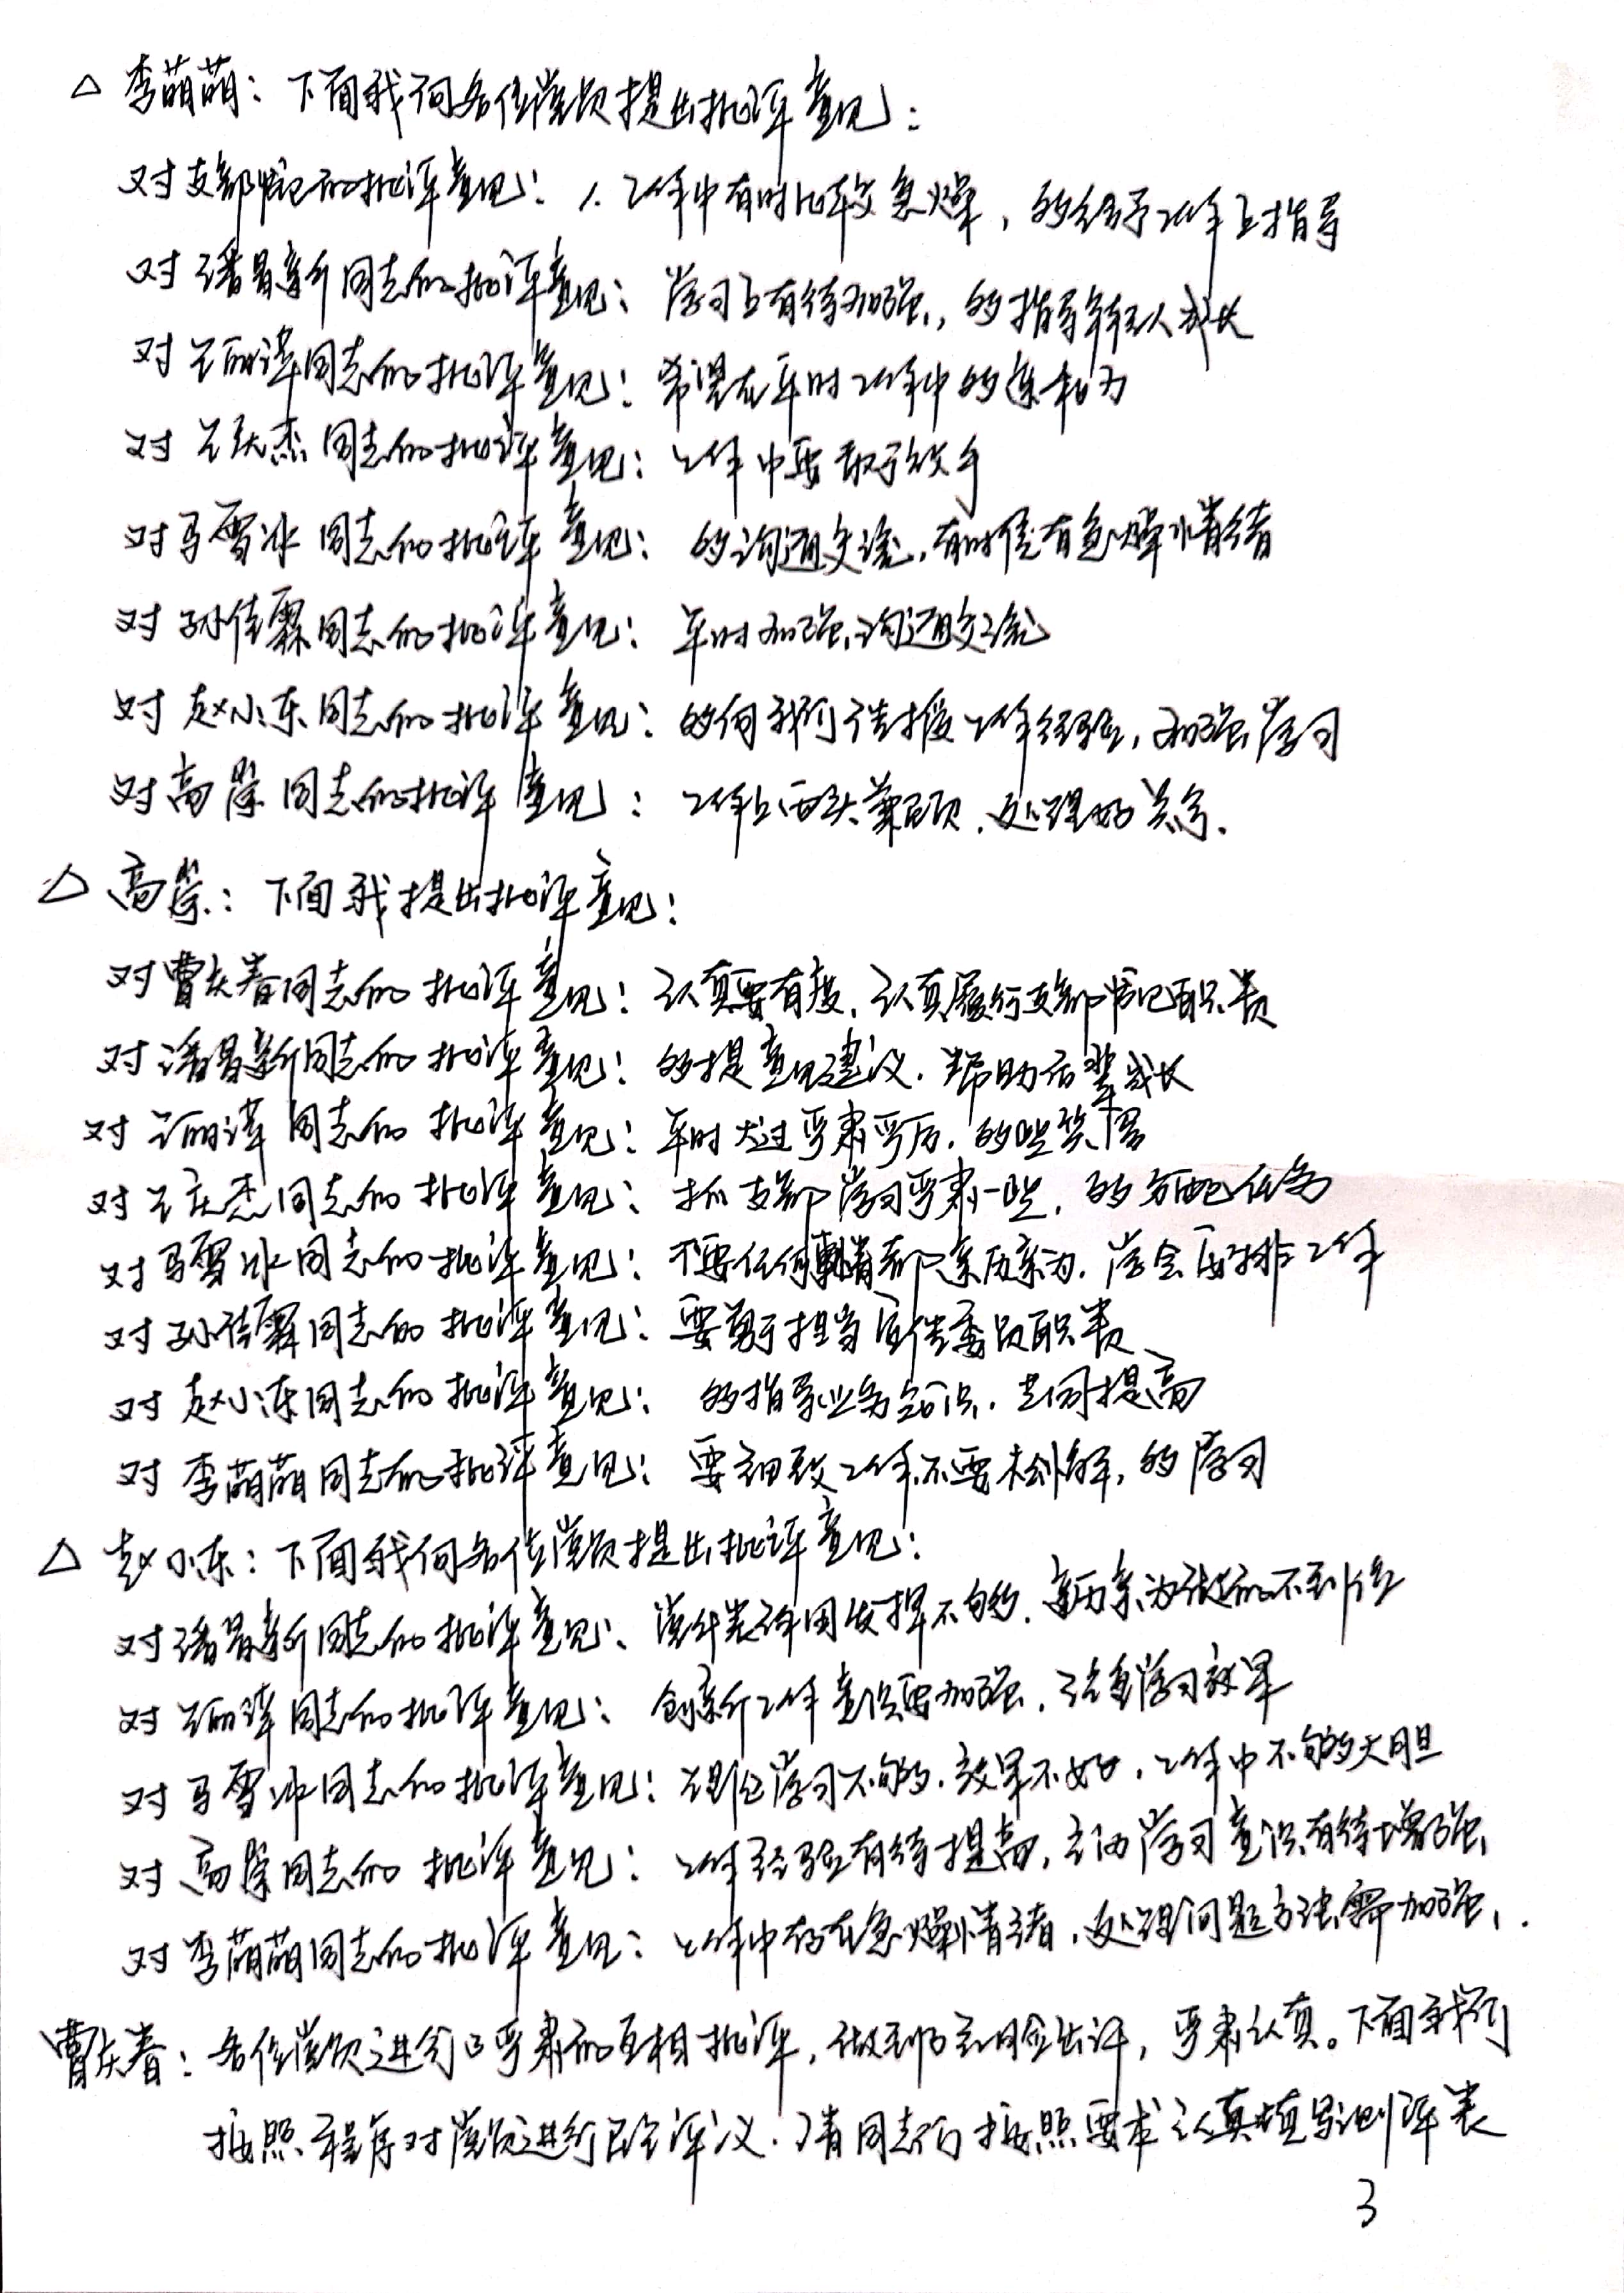 △ 李萌萌：下面我向各位党员提出批评意见：
对支部书记的批评意见：1.工作中有时比较急燥，多给予工作上指导
对潘昌新同志的批评意见：学习上有待加强，多指导年轻人成长
对 丽萍同志的批评意见：希望在平时工作中多速和力
对 庆杰同志的批评意见：工作中要敢于放手
对马雪冰同志的批评意见：多沟通交流，有时候有急燥情绪
对孙佳霖同志的批评意见：平时加强沟通交流
对赵小东同志的批评意见：多向我们传授工作经验，加强学习
对高 同志的批评意见：工作上两头兼顾，处理好关系。
△ 高 ：下面我提出批评意见：
对曹庆春同志的批评意见：认真要有度，认真履行支部书记职责
对潘昌新同志的批评意见：多提意见建议，帮助后辈成长
对 丽萍同志的批评意见：平时太过严肃严厉，多些笑容
对 庆杰同志的批评意见：抓支部学习严肃一些，多分配任务
对马雪冰同志的批评意见：不要任何事情都亲历亲为，学会安排工作
对孙佳霖同志的批评意见：要勇于担当宣传委员职责
对赵小东同志的批评意见：多指导业务知识，共同提高
对李萌萌同志的批评意见：要细致工作，不要松懈，多学习
△ 赵小东：下面我向各位党员提出批评意见：
对潘昌新同志的批评意见、党代表作用发挥不够，亲历亲为做的不到位
对 丽萍同志的批评意见：创新工作意识要加强，注重学习效果
对马雪冰同志的批评意见：理论学习不够，效果不好，工作中不够大胆
对高 同志的批评意见：工作经验有待提高，主动学习意识有待增强
对李萌萌同志的批评意见：工作中存在急燥情绪，处理问题方法需加强。
曹庆春：各位党员进行了严肃的互相批评，做到了 ，严肃认真。下面我们
按照程序对党员进行民主评议，请同志们按照要求认真填写测评表
3